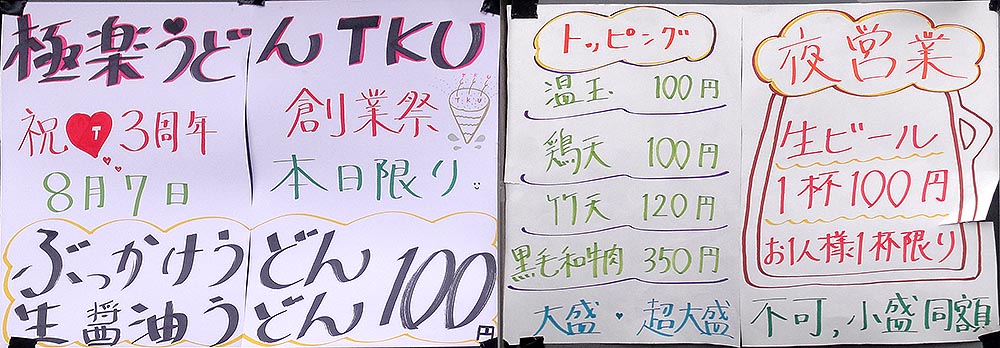 極楽うどんTKU
祝 T 3周年
創業祭
TKU
8月7日
本日限り
ぶっかけうどん
生醤油うどん
100円
トッピング
温玉 100円
鶏天 100円
竹天 120円
黒毛和牛肉 350円
大盛・超大盛
夜営業
生ビール
1杯100円
お1人様1杯限り
不可,小盛同額